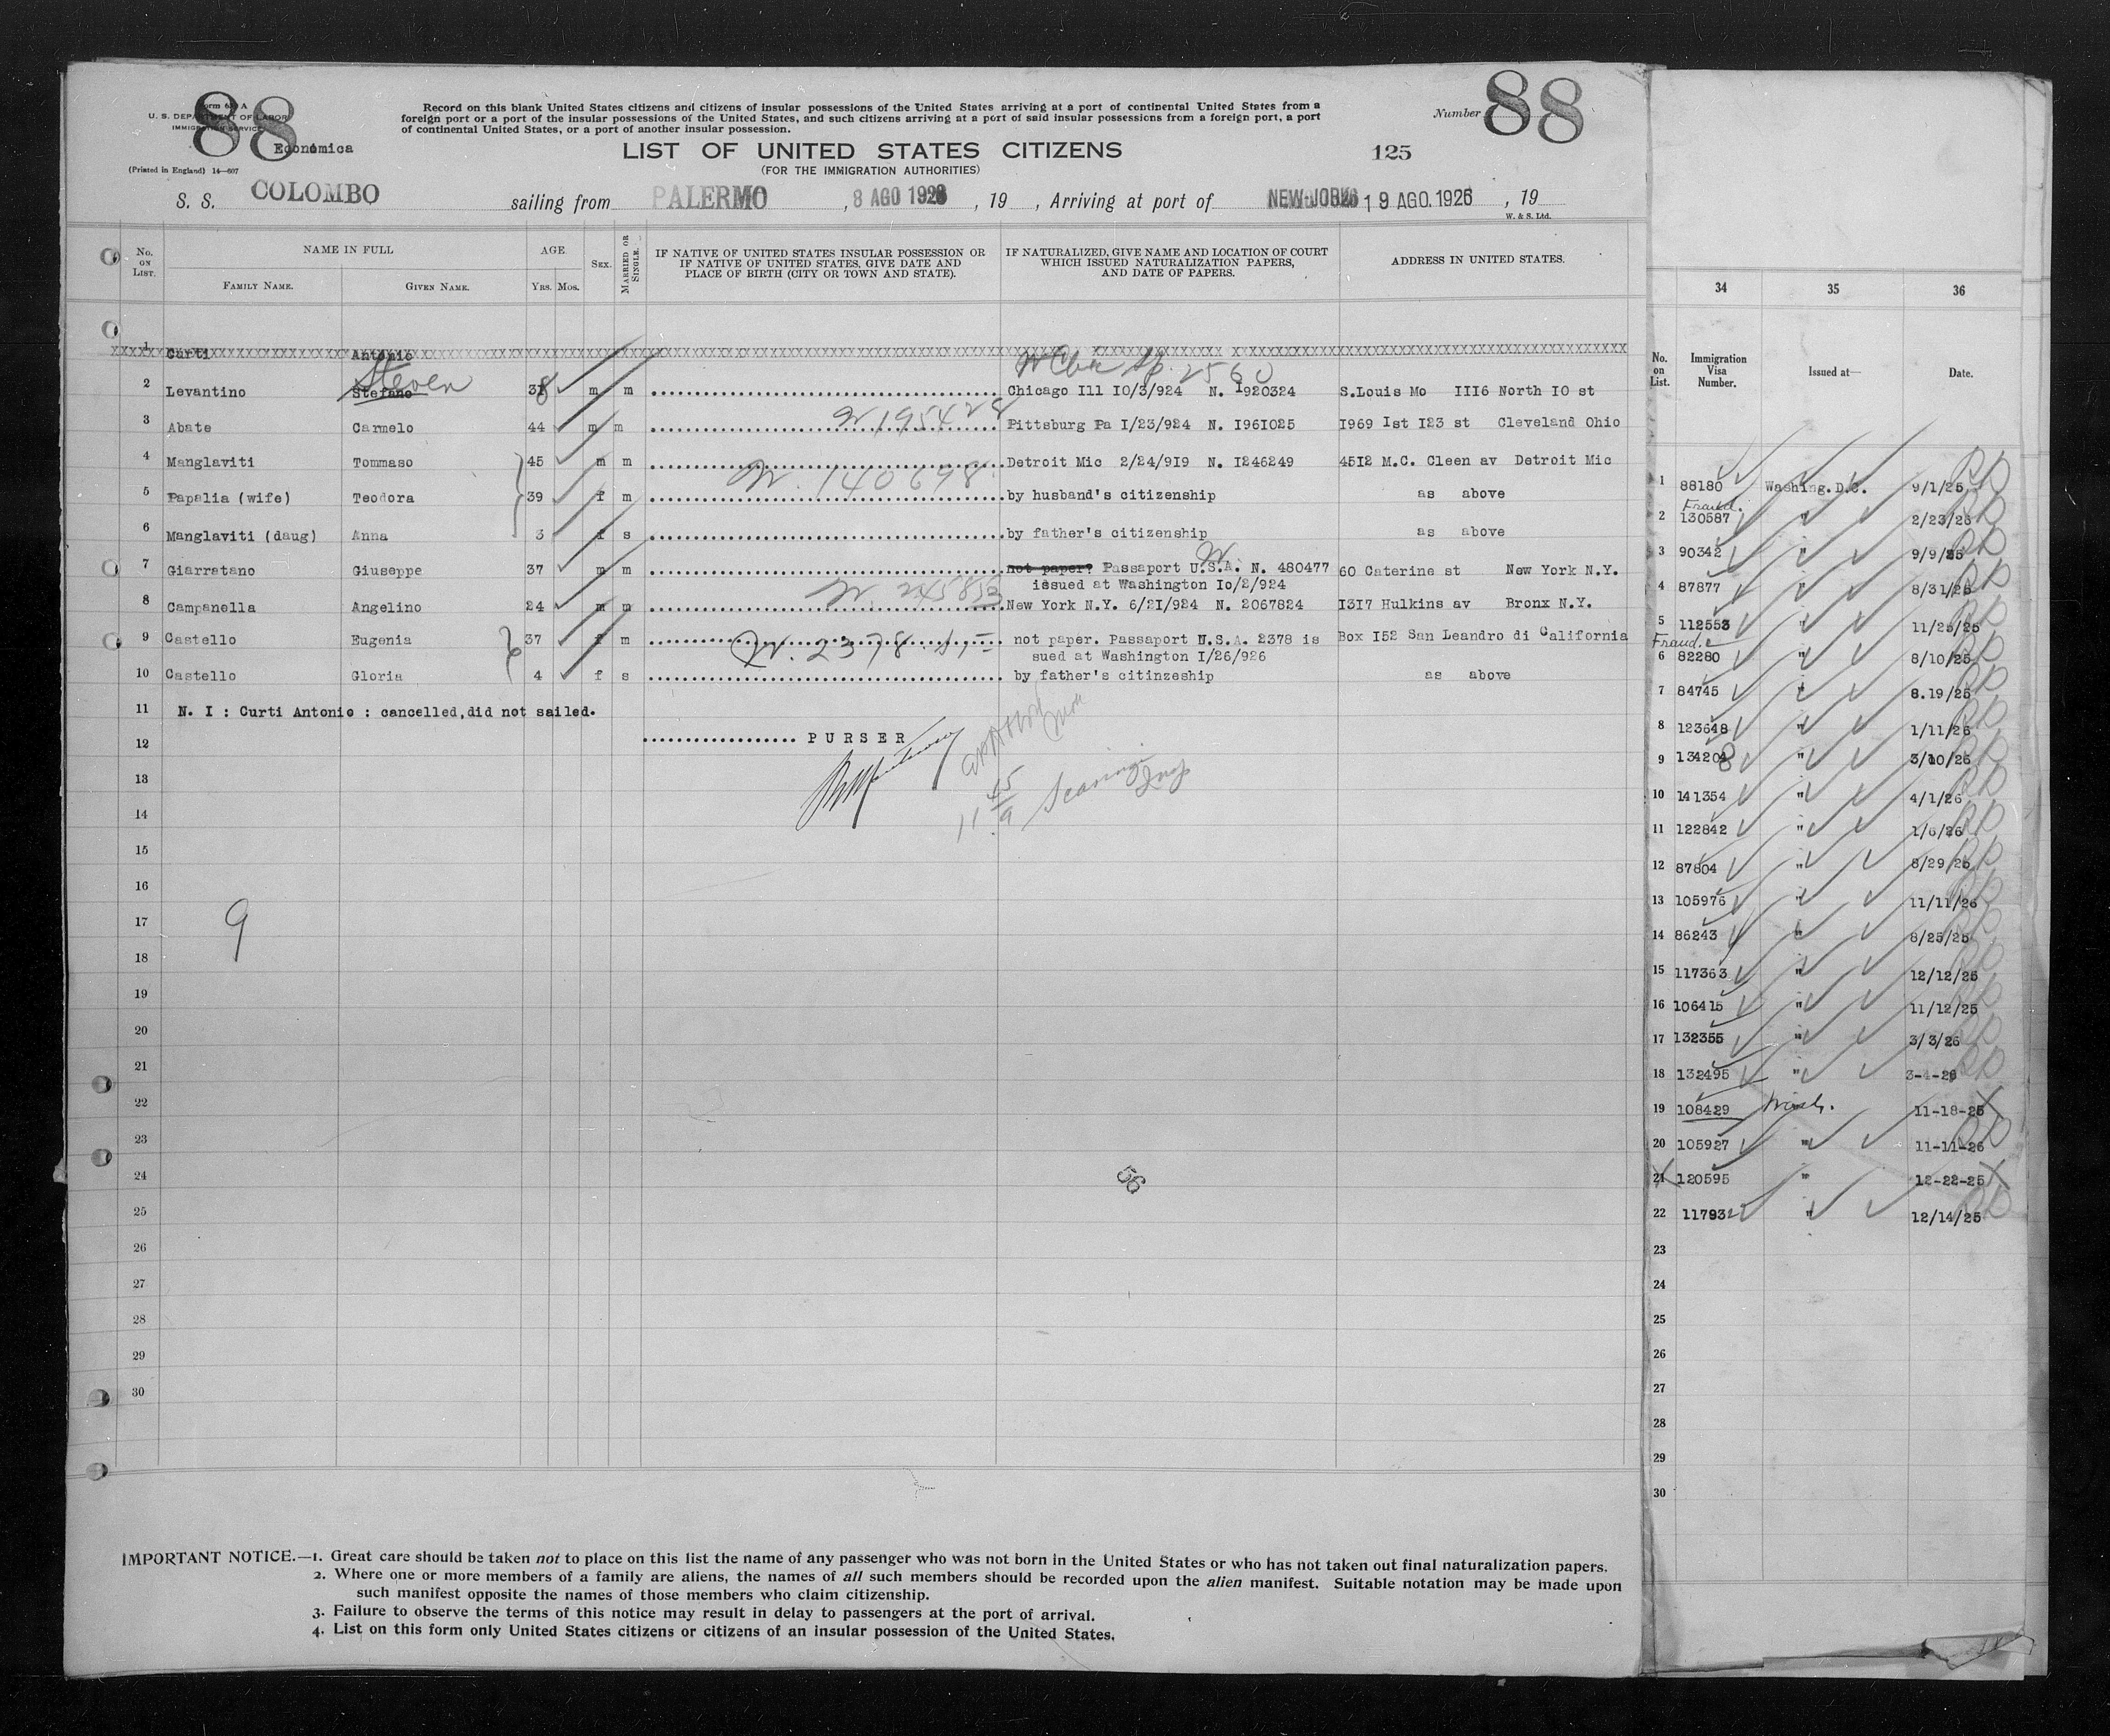 88
Form 630 A
U. S. DEPARTMENT OF LABOR
IMMIGRATION SERVICE
Economica
(Printed in England) 14—607
Record on this blank United States citizens and citizens of insular possessions of the United States arriving at a port of continental United States from a
foreign port or a port of the insular possessions of the United States, and such citizens arriving at a port of said insular possessions from a foreign port, a port
of continental United States, or a port of another insular possession.
Number 88
LIST OF UNITED STATES CITIZENS
125
(FOR THE IMMIGRATION AUTHORITIES)
S. S. COLOMBO sailing from PALERMO, 8 AGO 1926, 19 , Arriving at port of NEW-JORK 19 AGO. 1926, 19
W. & S. Ltd.
No. ON LIST. NAME IN FULL AGE SEX. MARRIED OR SINGLE. IF NATIVE OF UNITED STATES INSULAR POSSESSION OR IF NATIVE OF UNITED STATES, GIVE DATE AND PLACE OF BIRTH (CITY OR TOWN AND STATE). IF NATURALIZED, GIVE NAME AND LOCATION OF COURT WHICH ISSUED NATURALIZATION PAPERS, AND DATE OF PAPERS. ADDRESS IN UNITED STATES.
FAMILY NAME. GIVEN NAME. YRS. MOS.
1 Curti Antonio
Steven 2560
2 Levantino Stefano 38 m m Chicago Ill I0/3/924 N. 1920324 S.Louis Mo III6 North I0 st
195428
3 Abate Carmelo 44 m m Pittsburg Pa I/23/924 N. I96I025 I969 Ist I23 st Cleveland Ohio
4 Manglaviti Tommaso 45 m m Detroit Mic 2/24/9I9 N. I246249 45I2 M.C. Cleen av Detroit Mic
140698
5 Papalia (wife) Teodora 39 f m by husband's citizenship as above
6 Manglaviti (daug) Anna 3 f s by father's citizenship as above
7 Giarratano Giuseppe 37 m m not paper? Passaport U.S.A. N. 480477 60 Caterine st New York N.Y.
issued at Washington Io/2/924
245853
8 Campanella Angelino 24 m m New York N.Y. 6/2I/924 N. 2067824 I3I7 Hulkins av Bronx N.Y.
9 Castello Eugenia 37 f m not paper. Passaport N.S.A. 2378 is Box I52 San Leandro di California
2378
sued at Washington I/26/926
10 Castello Gloria 4 f s by father's citinzeship as above
11 N. I : Curti Antonio : cancelled,did not sailed.
12 PURSER
13
14
15
16
17
9
18
19
20
21
22
23
24
56
25
26
27
28
29
30
IMPORTANT NOTICE.—1. Great care should be taken not to place on this list the name of any passenger who was not born in the United States or who has not taken out final naturalization papers.
2. Where one or more members of a family are aliens, the names of all such members should be recorded upon the alien manifest. Suitable notation may be made upon
such manifest opposite the names of those members who claim citizenship.
3. Failure to observe the terms of this notice may result in delay to passengers at the port of arrival.
4. List on this form only United States citizens or citizens of an insular possession of the United States.
34 35 36
No. on List. Immigration Visa Number. Issued at— Date.
1 88180 Washing.D.C. 9/1/25
2 130587 " 2/23/26
3 90342 " 9/9/25
4 87877 " 8/31/25
5 112553 " 11/25/25
6 82280 " 8/10/25
7 84745 " 8.19/25
8 123648 " 1/11/26
9 134208 " 3/10/26
10 141354 " 4/1/26
11 122842 " 1/6/26
12 87804 " 8/29/25
13 105976 " 11/11/26
14 86243 " 8/25/25
15 117363 " 12/12/25
16 106415 " 11/12/25
17 132355 " 3/3/26
18 132495 " 3-4-26
19 108429 Wash. 11-18-25
20 105927 " 11-11-26
21 120595 " 12-22-25
22 117932 " 12/14/25
23
24
25
26
27
28
29
30